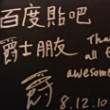 百度貼吧
爵士朋友
Thank
all
awesome
爵
8.12.10